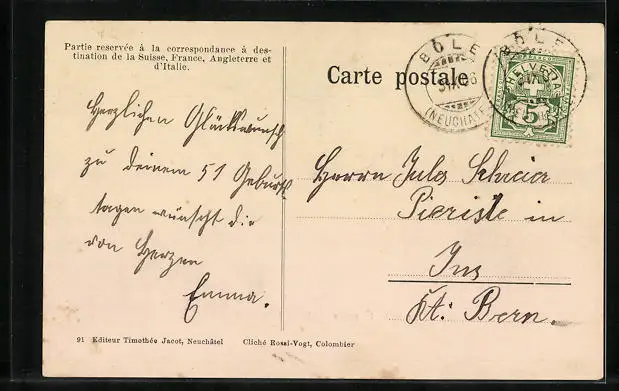 Partie reservée à la correspondance à des-
tination de la Suisse, France, Angleterre et
d'Italie.
Carte postale
BÔLE
(NEUCHATEL)
BÔLE
HELVETIA
5
Herzlichen Glückwunsch
zu deinem 51 Geburts
tagen wünscht dir
von Herzen
Emma.
Herrn Jules
in
Ins
Kt. Bern.
91 Editeur Timothée Jacot, Neuchâtel Cliché Rossi-Vogt, Colombier